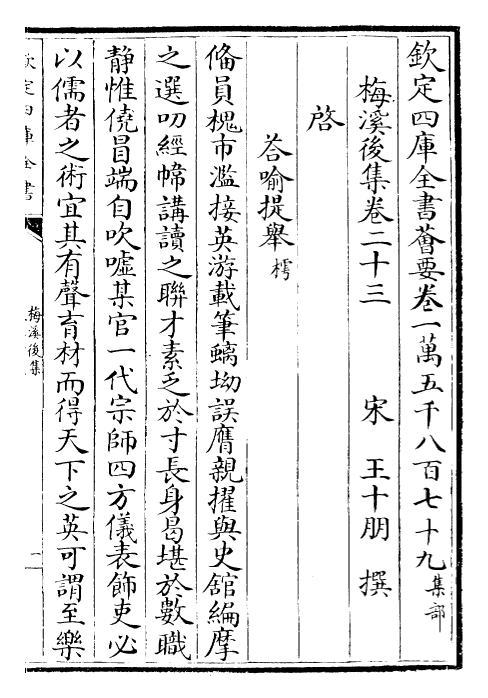 欽定四庫全書薈要卷一萬五千八百七十九集部
梅溪後集卷二十三　宋　王十朋　撰
啓
荅喻提舉樗
備員槐市濫接英游載筆螭坳誤膺親擢與史舘編摩
之選叨經幃講讀之聯才素乏於寸長身曷堪於數職
静惟僥冒端自吹嘘某官一代宗師四方儀表飾吏必
以儒者之術宜其有聲育材而得天下之英可謂至樂
欽定四庫全書
梅溪後集
一